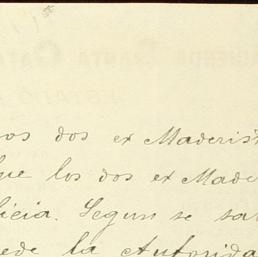 os dos ex Maderis
que los dos ex Made
licia. Segun se sa
ede la Autorida